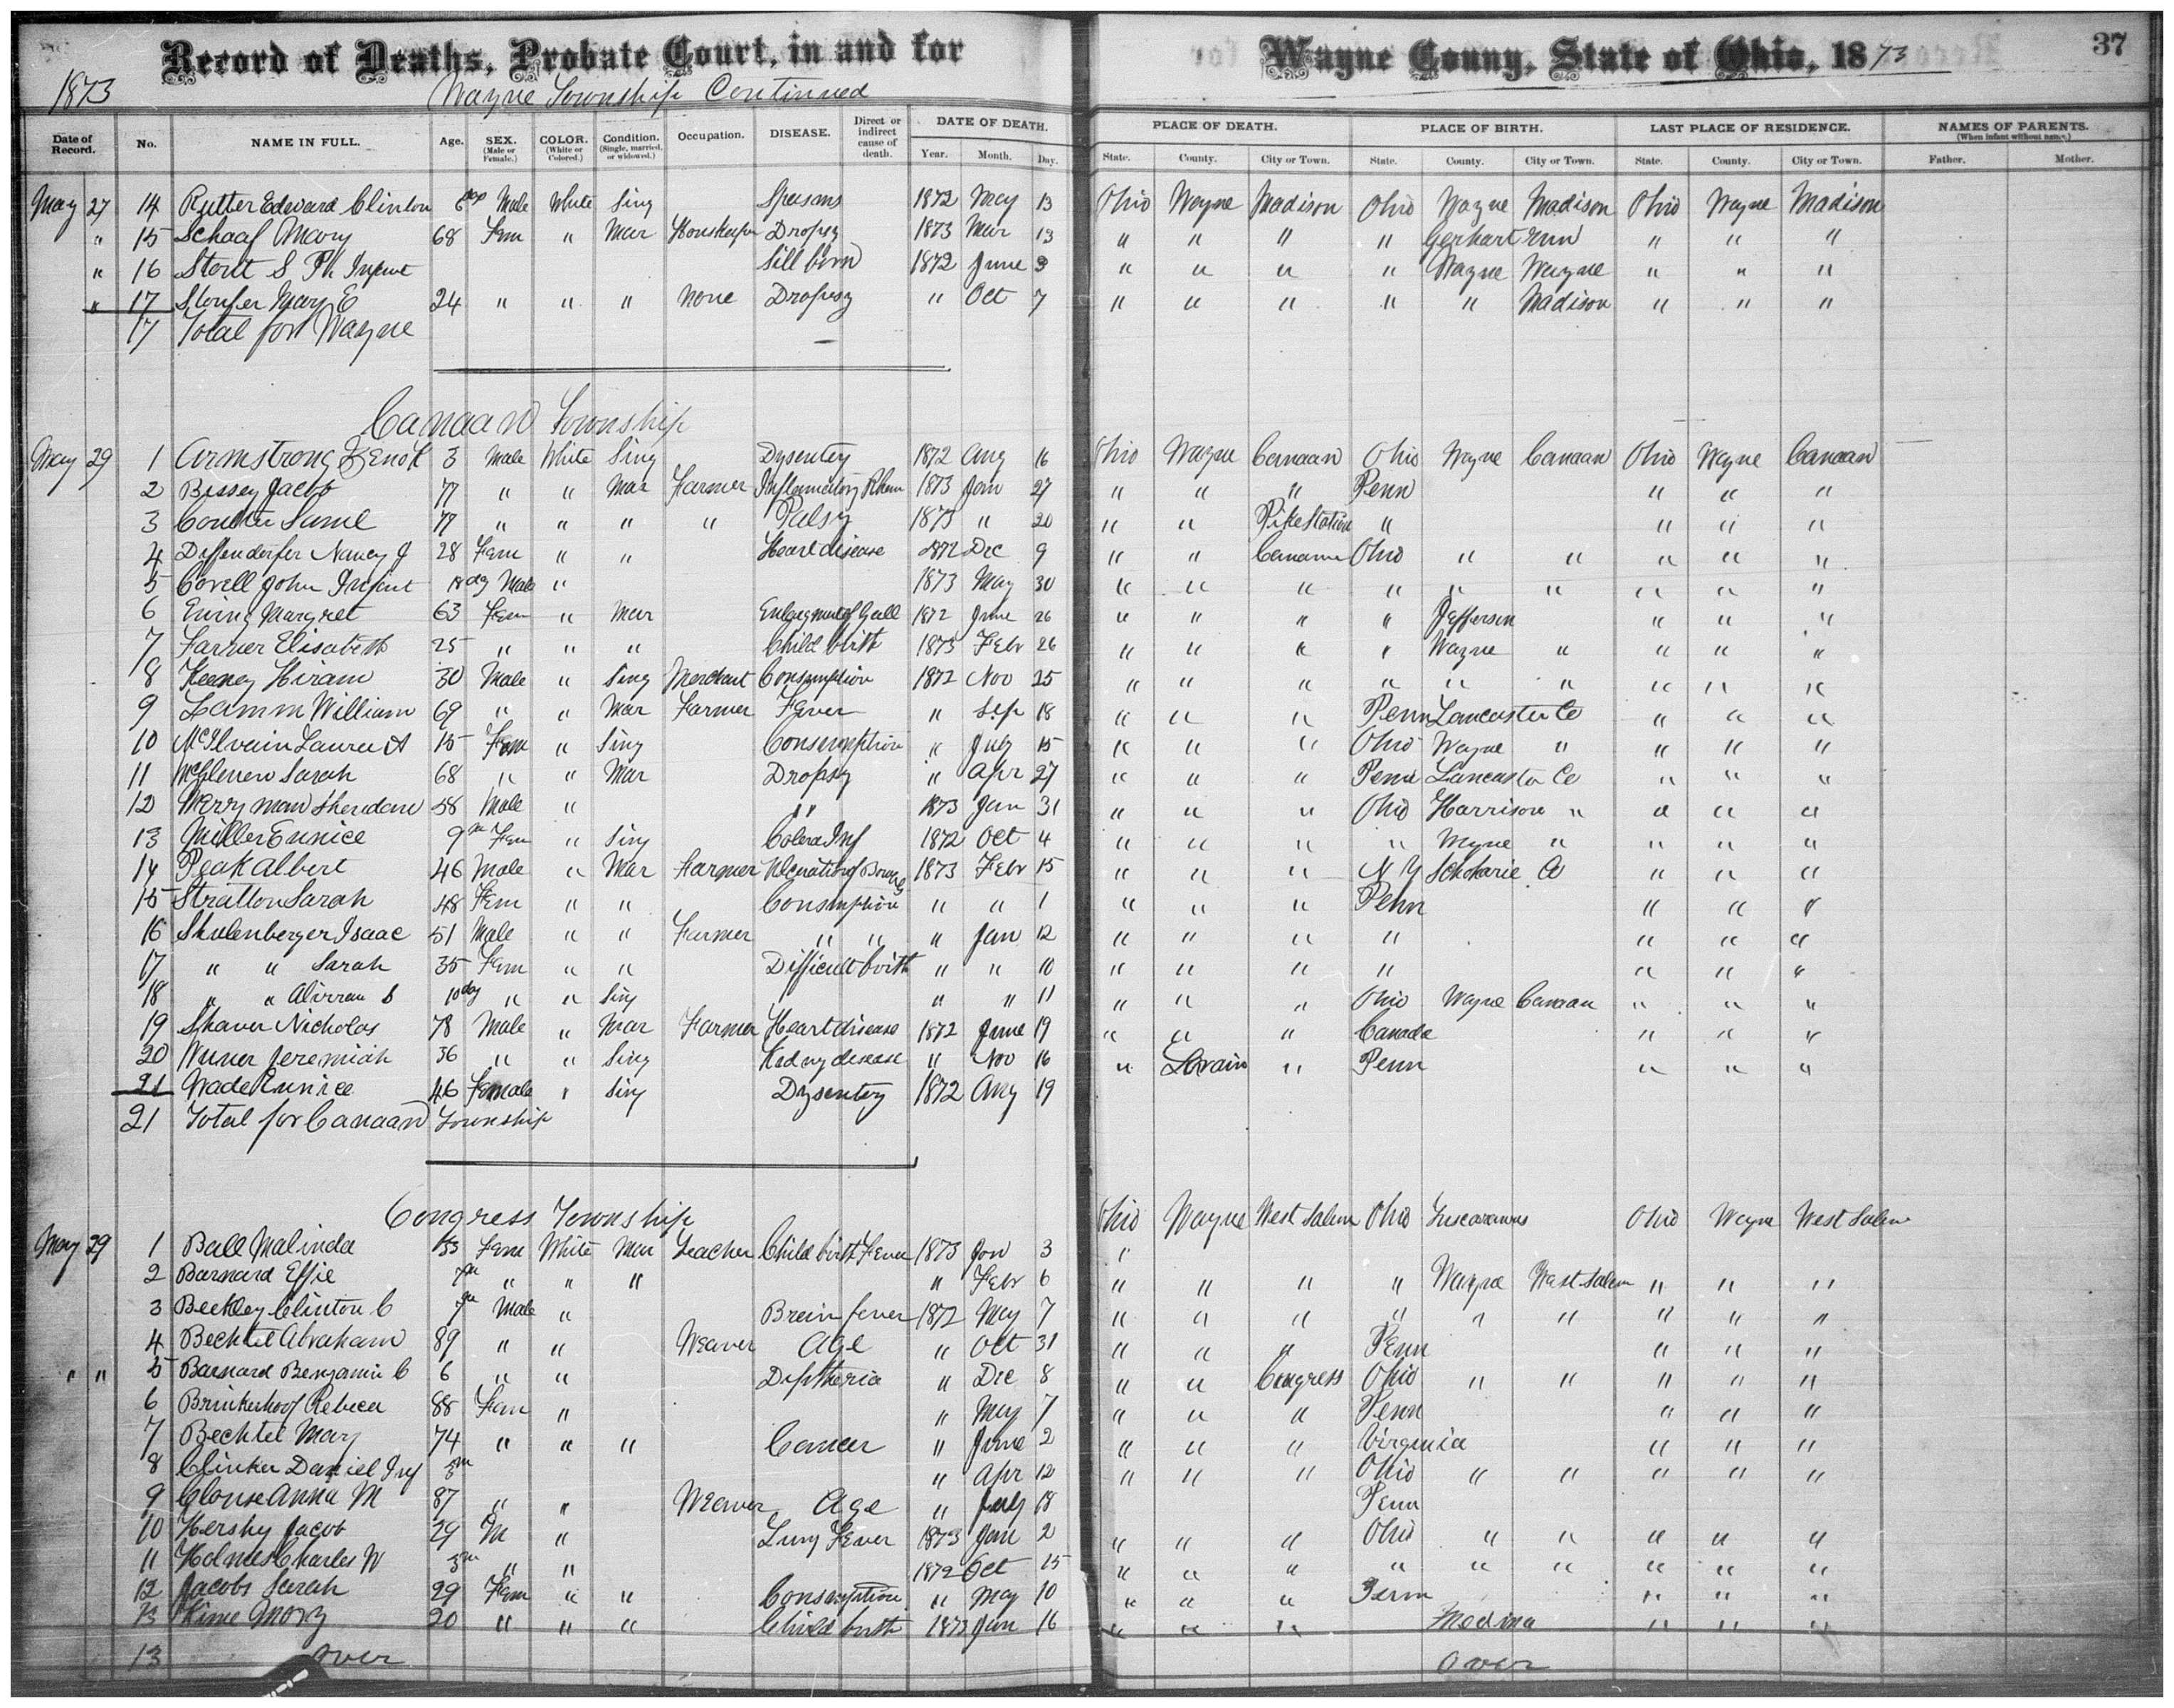 Record of Deaths, Probate Court, in and for Wayne Couny, State of Ohio, 1873 37
1873 Wayne Township Continued
Date of Record. No. NAME IN FULL. Age. SEX. (Male or Female.) COLOR. (White or Colored.) Condition. (Single, married, or widowed.) Occupation. DISEASE. Direct or indirect cause of death. DATE OF DEATH. Year. Month. Day. PLACE OF DEATH. State. County. City or Town. PLACE OF BIRTH. State. County. City or Town. LAST PLACE OF RESIDENCE. State. County. City or Town. NAMES OF PARENTS. (When infant without name.) Father. Mother.
May 27 14 Rutter Edward Clinton Male White Sing Spasms 1872 May 13 Ohio Wayne Madison Ohio Wayne Madison Ohio Wayne Madison
" 15 Schaaf Mary 68 Fem " Mar Housekeeper Dropsy 1873 Mar 13 " " " " " " "
" 16 Stout S Ph Infant Still born 1872 June 3 " " " " Wayne Wayne " " "
" 17 Stoufer Mary E 24 " " " None Dropsy " Oct 7 " " " " " Madison " " "
17 Total for Wayne
Canaan Township
May 29 1 Armstrong Enok 3 Male White Sing Dysentey 1872 Aug 16 Ohio Wayne Canaan Ohio Wayne Canaan Ohio Wayne Canaan
2 Bessey Jacob 77 " " Mar Farmer Inflamatory Rhem 1873 Jan 27 " " " Penn " " "
3 Coulter Saml 77 " " " " Palsy 1873 " 20 " " Pike Station " " " "
4 Diffenderfer Nancy J 28 Fem " " Heart disease 1872 Dec 9 " " Canaan Ohio " " " " "
5 Covell John Infant 18 dy Male " 1873 May 30 " " " " " " " " "
6 Ewing Margret 63 Fem " Mar Enlargment of Gall 1872 June 26 " " " " Jefferson " " "
7 Farver Elisabeth 25 " " " Child birth 1873 Febr 26 " " " " Wayne " " " "
8 Keeney Hiram 30 Male " Sing Merchant Consumption 1872 Nov 25 " " " " " " " " "
9 Lamm William 69 " " Mar Farmer Fever " Sep 18 " " " Penn Lancaster Co " " "
10 McIlvain Laura A 15 Fem " Sing Consumption " July 15 " " " Ohio Wayne " " " "
11 Sarah 68 " " Mar Dropsy " Apr 27 " " " Penn Lancaster Co " " "
12 Merryman Sheridan 58 Male " " 1873 Jan 31 " " " Ohio Harrison " " " "
13 Miller Eunice 9 m Fem " Sing Colera Inf 1872 Oct 4 " " " " Wayne " " " "
14 Peak Albert 46 Male " Mar Farmer Ulceration of Bowels 1873 Febr 15 " " " N Y Schoharie Co " " "
15 Stratton Sarah 48 Fem " " Consumption " " 1 " " " Penn " " "
16 Shulenberger Isaac 51 Male " " Farmer " " " Jan 12 " " " " " " "
17 " " Sarah 35 Fem " " Difficult birth " " 10 " " " " " " "
18 " " S 10 dy " " Sing " " 11 " " " Ohio Wayne Canaan " " "
19 Shaver Nicholas 78 Male " Mar Farmer Heart disease 1872 June 19 " " " Canada " " "
20 Jeremiah 36 " " Sing Kidny disease " Nov 16 " Lorain " Penn " " "
21 Wade Eunice 46 Female " Sing Dysentey 1872 Aug 19
21 Total for Canaan Township
Congress Township
Ohio Wayne West Salem Ohio Tuscarawas Ohio Wayne West Salem
May 29 1 Ball Malinda 33 Fem White Mar Teacher Child birth Fever 1873 Jan 3 "
2 Barnard Effie " " " " Febr 6 " " " " Wayne West Salem " " "
3 Beckley Clinton C 7 m Male " Brain fever 1872 May 7 " " " " " " " " "
4 Bechtel Abraham 89 " " Weaver Age " Oct 31 " " " Penn " " "
" " 5 Barnard Benjamin C 6 " " Diptheria " Dec 8 " " Congress Ohio " " " " "
6 Brinkerhoof Rebeca 88 Fem " " May 7 " " " Penn " " "
7 Bechtel Mary 74 " " " Cancer " June 2 " " " Virginia " " "
8 Clinker Daniel Inf 3 m " Apr 12 " " " Ohio " " " " "
9 Clouse Anna M 87 " " Weaver Age " July 18 Penn
10 Hershy Jacob 29 M " Lung Fever 1873 Jan 2 " " " Ohio " " " " "
11 Holmes Charles W 3 m " " 1872 Oct 15 " " " " " " " " "
12 Jacobs Sarah 29 Fem " " Consumption " May 10 " " " Penn " " "
13 Kime Mary 20 " " " Child birth 1873 Jan 16 " " " Medina " " "
13 over over